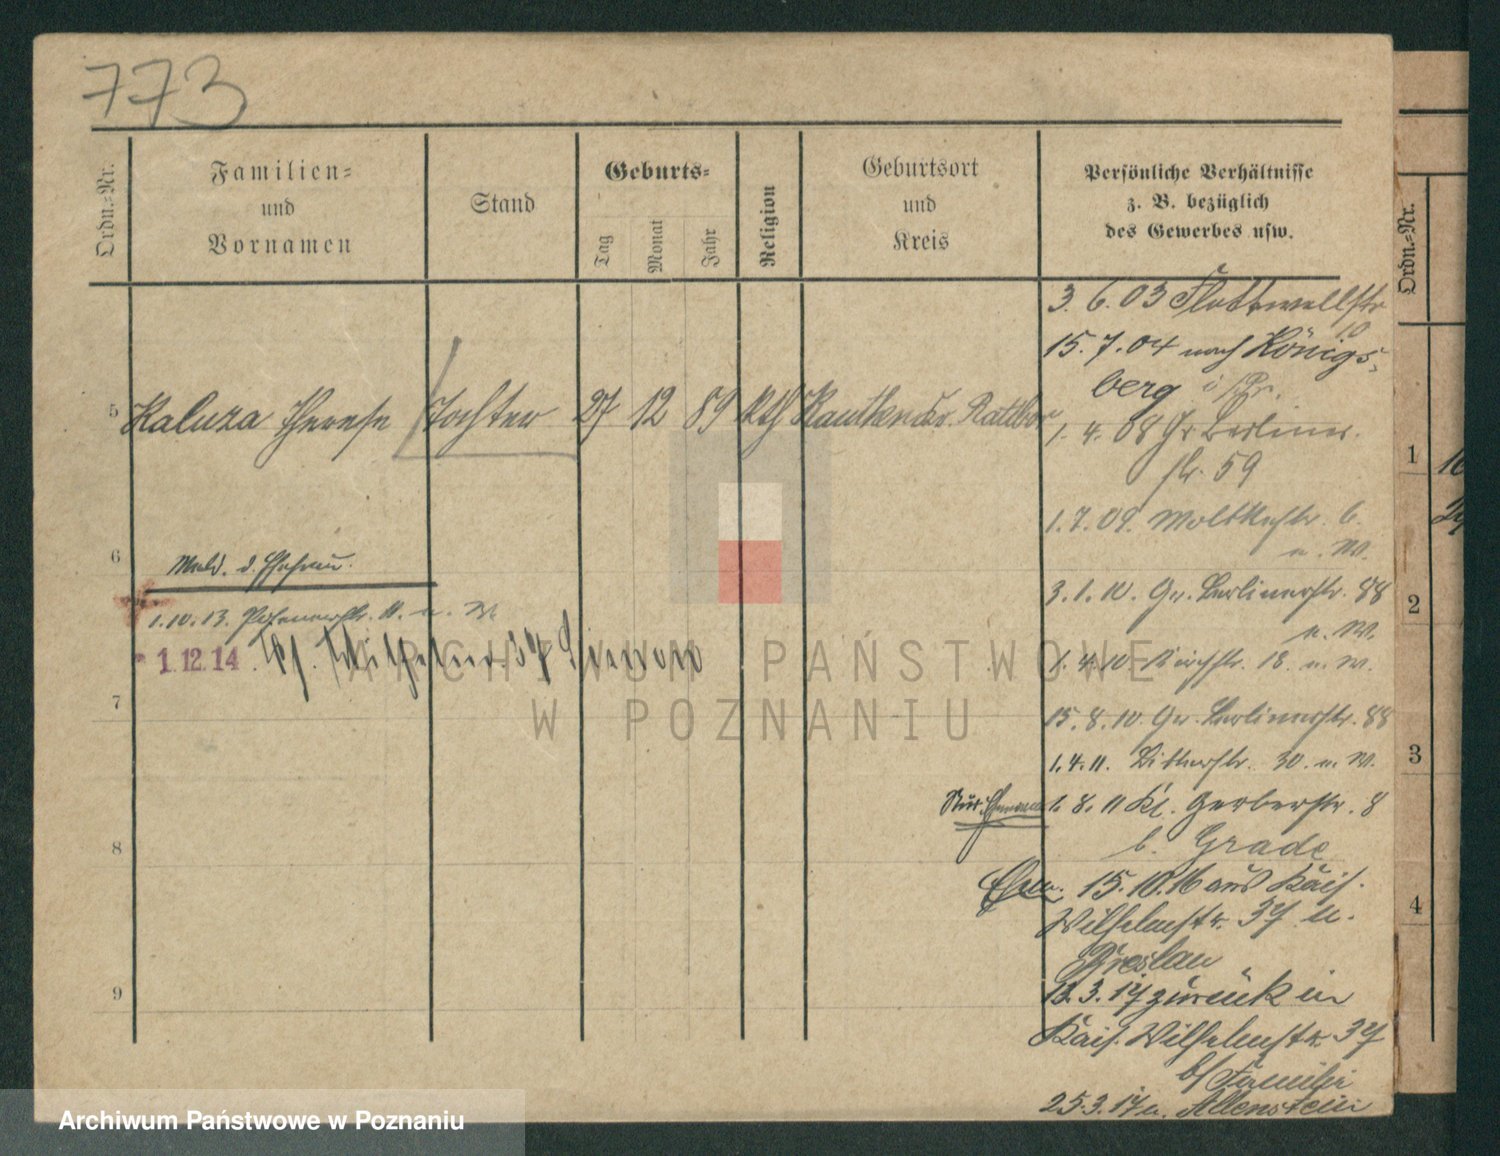 773
Ordn.=Nr.
Familien=
und
Vornamen
Stand
Geburts=
Tag
Monat
Jahr
Religion
Geburtsort
und
Kreis
Persönliche Verhältnisse
z. B. bezüglich
des Gewerbes usw.
3. 6. 03 Flottwellstr
10
15. 7. 04 nach Königs-
berg i/Pr.
5 Kaluza Therese Tochter 27 12 89 kth Rauthen Kr. Ratibor
1. 4. 08 Gr Berliner
str. 59
1. 7. 09. Moltkestr. 6.
n. W.
6
Meld. d. Ehefrau.
3. 1. 10. Gr. Berlinerstr. 88
n. W.
1. 10. 13. Posenerstr. 11. n. W.
1.12.14 Wilhelmstr 37
1. 4. 10. Kirchstr. 18. n. W.
7
15. 8. 10. Gr. Berlinerstr. 88
1. 4. 11. Bitterstr. 30. n. W.
Nur Ehemann 1. 8. 11 Kl. Gerberstr. 8
8
b. Grade
Ehem. 15. 10. 16 aus Kais.
Wilhelmstr. 37 n.
Breslau
9
13. 3. 17 zurück in
Kais. Wilhelmstr. 37
b/ Familie
25. 3. 17 n. Allenstein
Ordn.=Nr.
1
2
3
4
ARCHIWUM PAŃSTWOWE
W POZNANIU
Archiwum Państwowe w Poznaniu